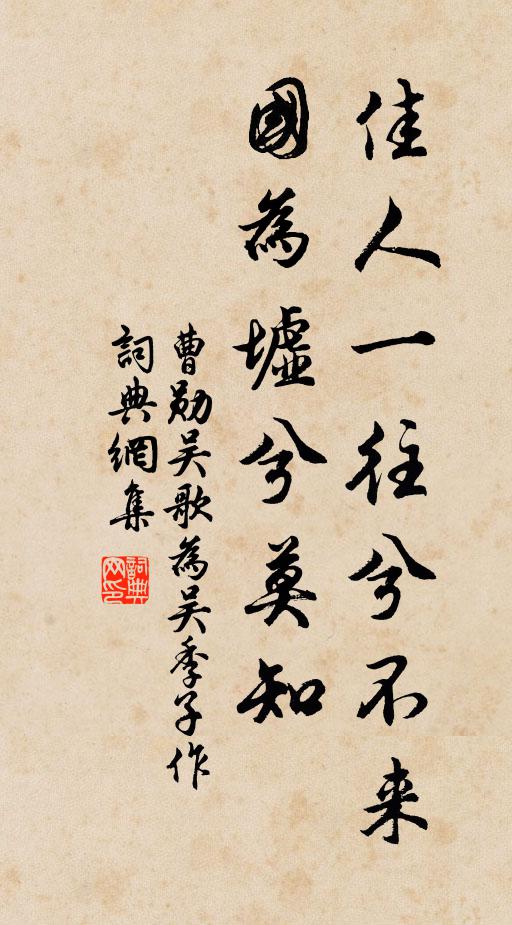 佳人一往兮不来
國為墟兮莫知
曹勛吴歌為吴季子作
詞典網集
詞典网印